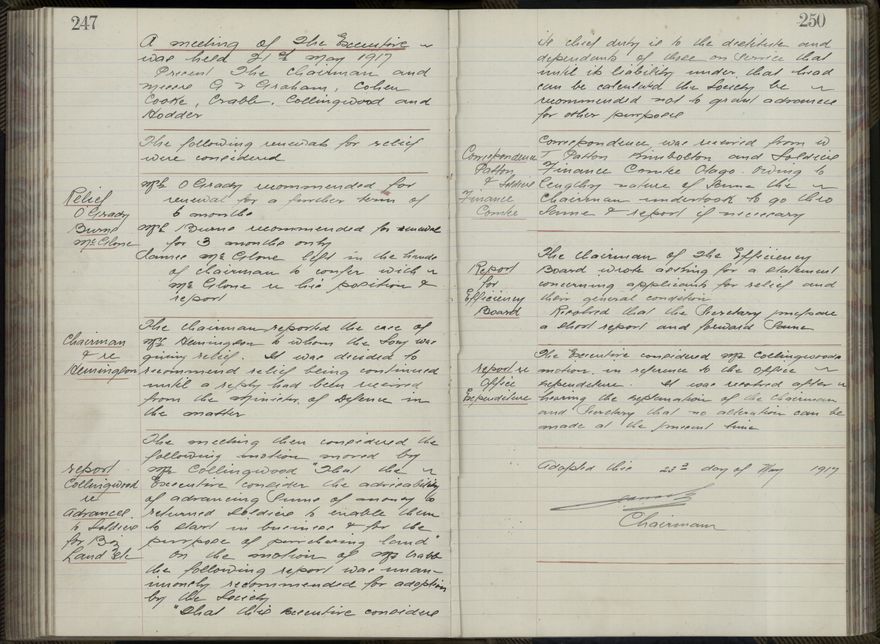 247
A meeting of The Executive
was held 21st May 1917
Present The Chairman and
Messrs G Graham, Cohen
Cooke, Crabbe, Collingwood and
Hodder
The following renewals for relief
were considered
Relief
O'Grady
Burns
McGlone
Mrs O'Grady recommended for
renewal for a further term of
6 months
Mrs Burns recommended for renewal
for 3 months only
James McGlone left in the hands
of Chairman to confer with
McGlone re his position &
report
Chairman
& re
Hemington
The Chairman reported the case of
Mrs Hemington to whom the Socy was
giving relief. It was decided to
recommend relief being continued
until a reply had been received
from the Minister of Defence in
the matter
report
Collingwood
re
advances
to Soldiers
for Biz
Land Etc
The meeting then considered the
following motion moved by
Mr Collingwood "That the
Executive consider the advisability
of advancing Sums of money to
returned Soldiers to enable them
to start in business & for the
purpose of purchasing land"
On the motion of Mr Crabbe
the following report was unan-
imously recommended for adoption
by the Society
"That this Executive considers
250
its chief duty is to the destitute and
dependents of those on Service that
until its liability under that head
can be calculated the Society be
recommended not to grant advances
for other purposes
Correspondence
Patton
& Soldiers
Finance
Comtee
Correspondence was received from W
T Patton Kimbolton and Soldiers
Finance Comtee Otago. Owing to
lengthy nature of Same the
Chairman undertook to go thro
Same & report if necessary
Report
for
Efficiency
Board
The Chairman of The Efficiency
Board wrote asking for a Statement
concerning applicants for relief and
their general condition
Resolved that the Secretary prepare
a short report and forward Same
report re
Office
Expenditure
The Executive considered Mr Collingwoods
motion in reference to the Office
Expenditure. It was resolved after
hearing the explanation of the Chairman
and Secretary that no alteration can be
made at the present time
Adopted this 28th day of May 1917
Chairman